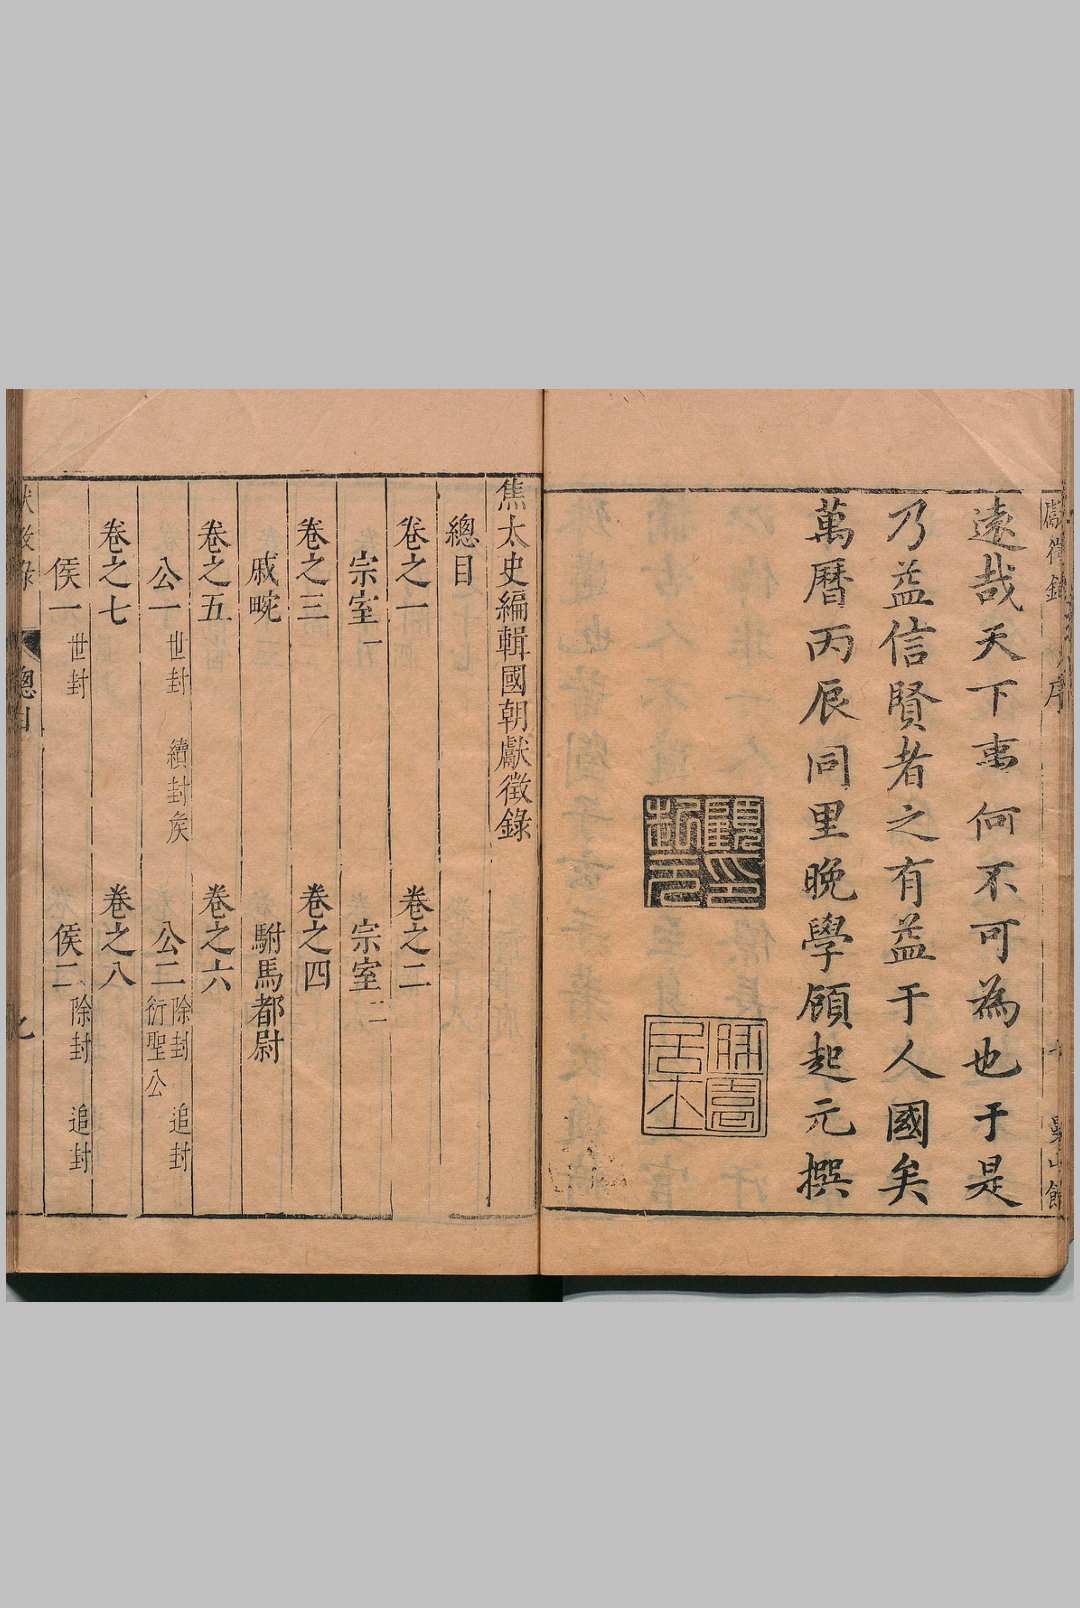 獻徵錄
序
曼山館
遠哉天下事何不可為也于是
乃益信賢者之有益于人國矣
萬曆丙辰同里晚學顧起元撰
焦太史編輯國朝獻徵錄
總目
卷之一
卷之二
宗室一
宗室二
卷之三
卷之四
戚畹
駙馬都尉
卷之五
卷之六
公一 世封 續封侯
公二 除封 追封 衍聖公
卷之七
卷之八
侯一 世封
侯二 除封 追封
總目